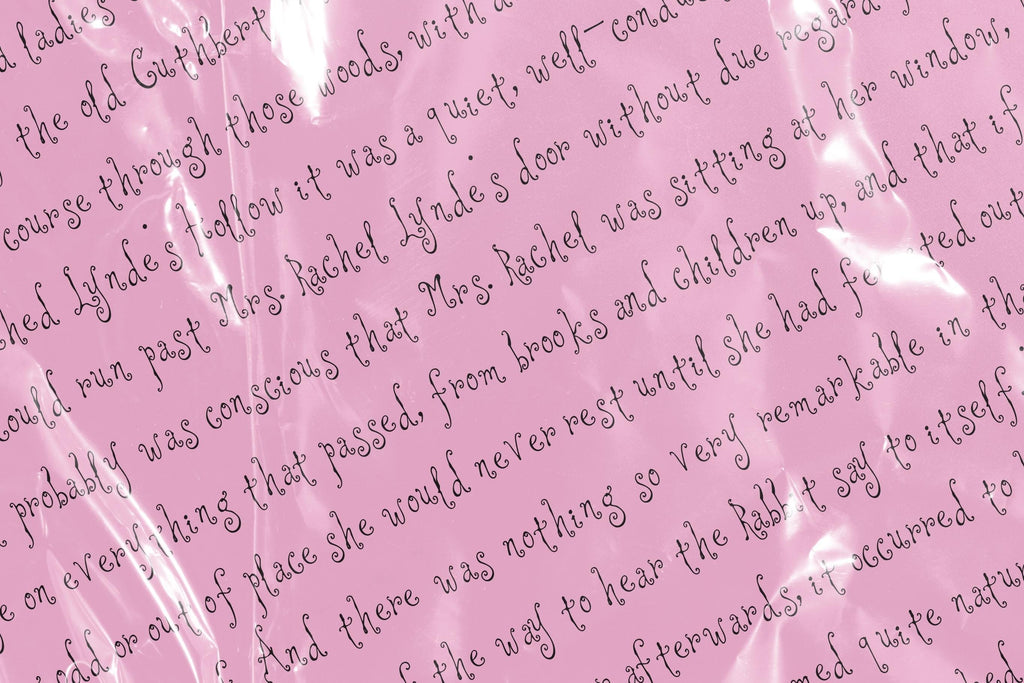 d ladies
the old Cuthbert
course through those woods, with
hed Lynde's Hollow it was a quiet, well-conduc
could run past Mrs. Rachel Lynde's door without due regard
probably was conscious that Mrs. Rachel was sitting at her window,
e on everything that passed, from brooks and children up, and that if
odd or out of place she would never rest until she had out
And there was nothing so very remarkable in
the way to hear the Rabbit say to itself,
afterwards, it occurred to
med quite natur